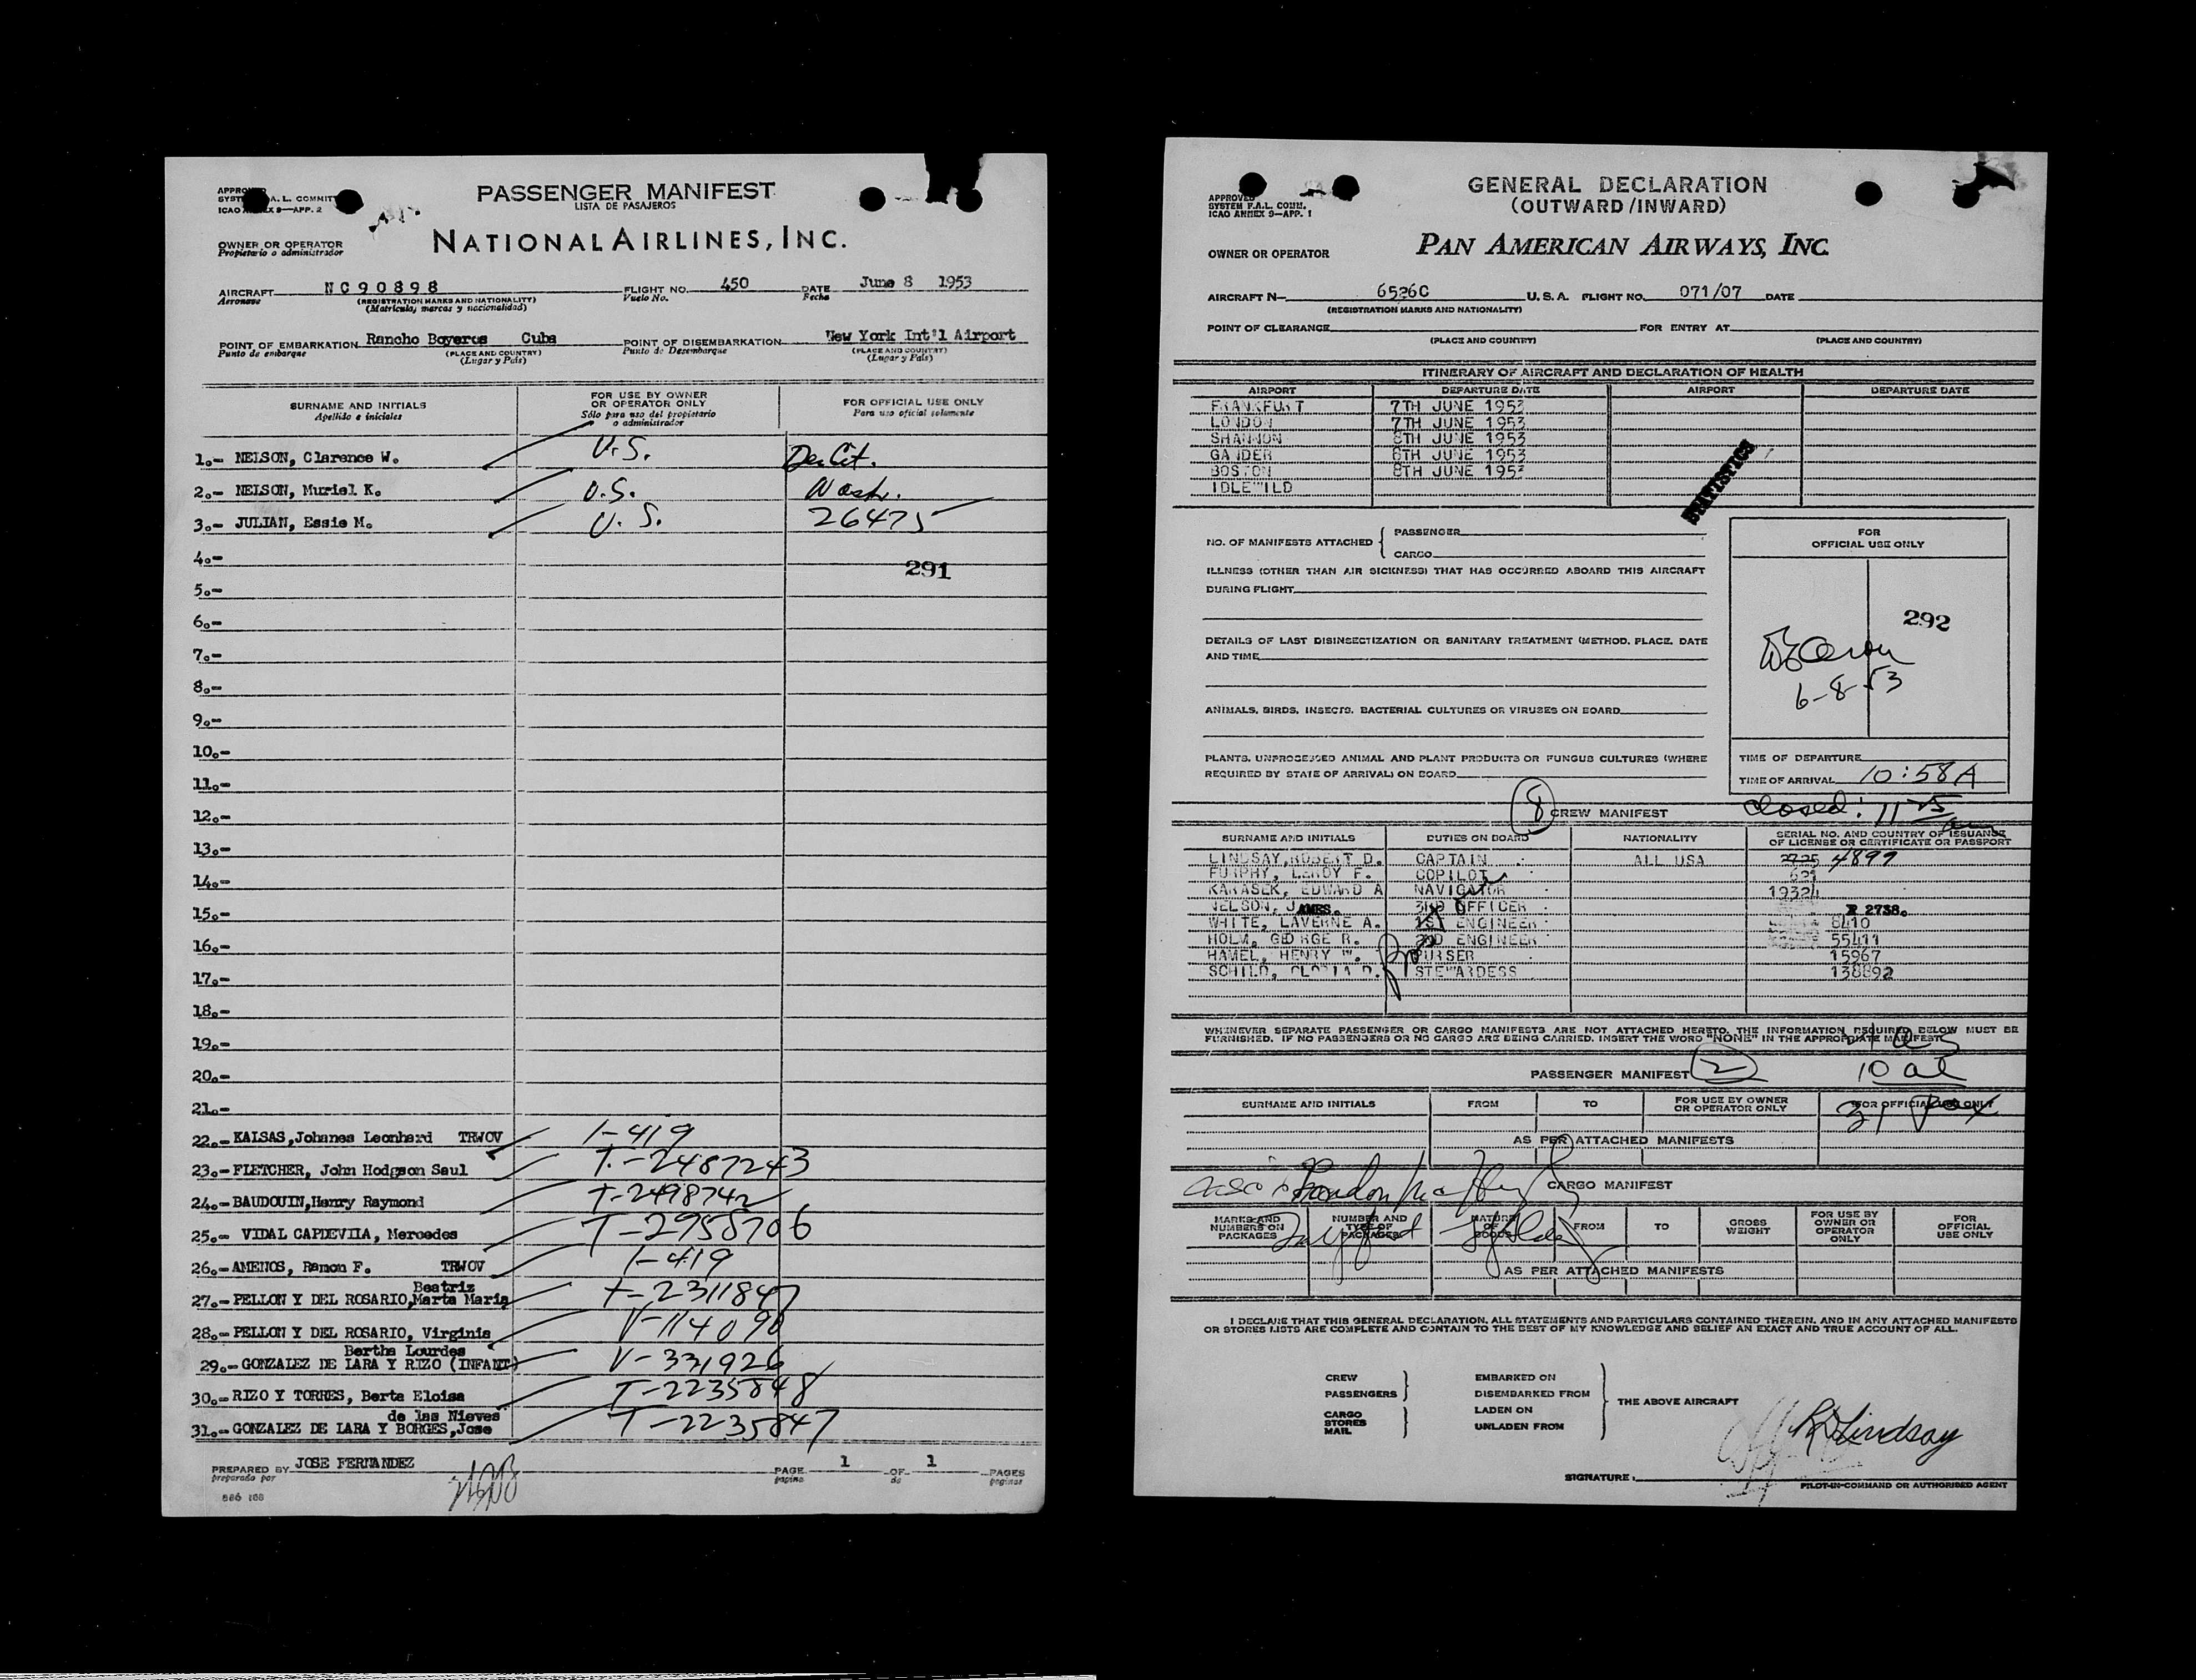 APPROVED
SYSTEM F.A.L. COMMITTEE
ICAO ANNEX 9—APP. 2
PASSENGER MANIFEST
LISTA DE PASAJEROS
NATIONAL AIRLINES, INC.
OWNER OR OPERATOR
Propietario o administrador
AIRCRAFT NC90898 FLIGHT NO. 450 DATE June 8 1953
Aeronave (REGISTRATION MARKS AND NATIONALITY) Vuelo No. Fecha
(Matrícula, marcas y nacionalidad)
POINT OF EMBARKATION Rancho Boyeros Cuba POINT OF DISEMBARKATION New York Int'l Airport
Punto de embarque (PLACE AND COUNTRY) Punto de Desembarque (PLACE AND COUNTRY)
(Lugar y País) (Lugar y País)
SURNAME AND INITIALS FOR USE BY OWNER OR OPERATOR ONLY FOR OFFICIAL USE ONLY
Apellido e iniciales Sólo para uso del propietario o administrador Para uso oficial solamente
1.- NELSON, Clarence W. U.S.
2.- NELSON, Muriel K. U.S.
3.- JULIAN, Essie M. U.S. 26475
4.-
291
5.-
6.-
7.-
8.-
9.-
10.-
11.-
12.-
13.-
14.-
15.-
16.-
17.-
18.-
19.-
20.-
21.-
22.- KALSAS, Johanes Leonhard TRWOV 1-419
23.- FLETCHER, John Hodgson Saul T-2487243
24.- BAUDOUIN, Henry Raymond T-2498742
25.- VIDAL CAPDEVILA, Mercedes T-2958706
26.- AMENOS, Ramon F. TRWOV 1-419
Beatriz
27.- PELLON Y DEL ROSARIO, Marta Maria T-2311847
28.- PELLON Y DEL ROSARIO, Virginia
Bertha Lourdes
29.- GONZALEZ DE LARA Y RIZO (INFANT) V-331926
30.- RIZO Y TORRES, Berta Eloisa T-2235848
de las Nieves
31.- GONZALEZ DE LARA Y BORGES, Jose T-2235847
PREPARED BY JOSE FERNANDEZ PAGE 1 OF 1 PAGES
preparado por página de páginas
APPROVED
SYSTEM F.A.L. COMM.
ICAO ANNEX 9—APP. 1
GENERAL DECLARATION
(OUTWARD/INWARD)
OWNER OR OPERATOR PAN AMERICAN AIRWAYS, INC.
AIRCRAFT N— 6526C U.S.A. FLIGHT NO. 071/07 DATE
(REGISTRATION MARKS AND NATIONALITY)
POINT OF CLEARANCE FOR ENTRY AT
(PLACE AND COUNTRY) (PLACE AND COUNTRY)
ITINERARY OF AIRCRAFT AND DECLARATION OF HEALTH
AIRPORT DEPARTURE DATE AIRPORT DEPARTURE DATE
FRANKFURT 7TH JUNE 1953
LONDON 7TH JUNE 1953
SHANNON 8TH JUNE 1953
GANDER 8TH JUNE 1953
BOSTON 8TH JUNE 1953
IDLEWILD
STATISTICS
NO. OF MANIFESTS ATTACHED PASSENGER
CARGO
FOR
OFFICIAL USE ONLY
ILLNESS (OTHER THAN AIR SICKNESS) THAT HAS OCCURRED ABOARD THIS AIRCRAFT
DURING FLIGHT
292
DETAILS OF LAST DISINSECTIZATION OR SANITARY TREATMENT (METHOD, PLACE, DATE
AND TIME
6-8-53
ANIMALS, BIRDS, INSECTS, BACTERIAL CULTURES OR VIRUSES ON BOARD
PLANTS, UNPROCESSED ANIMAL AND PLANT PRODUCTS OR FUNGUS CULTURES (WHERE
REQUIRED BY STATE OF ARRIVAL) ON BOARD
TIME OF DEPARTURE
TIME OF ARRIVAL 10:58A
closed: 11
8 CREW MANIFEST
SURNAME AND INITIALS DUTIES ON BOARD NATIONALITY SERIAL NO. AND COUNTRY OF ISSUANCE OF LICENSE OR CERTIFICATE OR PASSPORT
LINDSAY, ROBERT D. CAPTAIN ALL USA 2725 4899
FURPHY, LEROY F. COPILOT 621
KARASEK, EDWARD A NAVIGATOR 19324
NELSON, JAMES. 3RD OFFICER P 2738.
WHITE, LAVERNE A. 1ST ENGINEER 8410
HOLM, GEORGE R. 2ND ENGINEER 55411
HAMEL, HENRY W. PURSER 15967
SCHILD, GLORIA D. STEWARDESS 138892
WHENEVER SEPARATE PASSENGER OR CARGO MANIFESTS ARE NOT ATTACHED HERETO, THE INFORMATION REQUIRED BELOW MUST BE
FURNISHED. IF NO PASSENGERS OR NO CARGO ARE BEING CARRIED, INSERT THE WORD "NONE" IN THE APPROPRIATE MANIFEST.
PASSENGER MANIFEST 2 10 al
SURNAME AND INITIALS FROM TO FOR USE BY OWNER OR OPERATOR ONLY FOR OFFICIAL USE ONLY
31 Pax
AS PER ATTACHED MANIFESTS
CARGO MANIFEST
MARKS AND NUMBERS ON PACKAGES NUMBER AND TYPE OF PACKAGES NATURE OF GOODS FROM TO GROSS WEIGHT FOR USE BY OWNER OR OPERATOR ONLY FOR OFFICIAL USE ONLY
AS PER ATTACHED MANIFESTS
I DECLARE THAT THIS GENERAL DECLARATION, ALL STATEMENTS AND PARTICULARS CONTAINED THEREIN, AND IN ANY ATTACHED MANIFESTS
OR STORES LISTS ARE COMPLETE AND CONTAIN TO THE BEST OF MY KNOWLEDGE AND BELIEF AN EXACT AND TRUE ACCOUNT OF ALL.
CREW EMBARKED ON
PASSENGERS DISEMBARKED FROM
THE ABOVE AIRCRAFT
CARGO LADEN ON
STORES
MAIL UNLADEN FROM
R D Lindsay
SIGNATURE:
PILOT-IN-COMMAND OR AUTHORISED AGENT